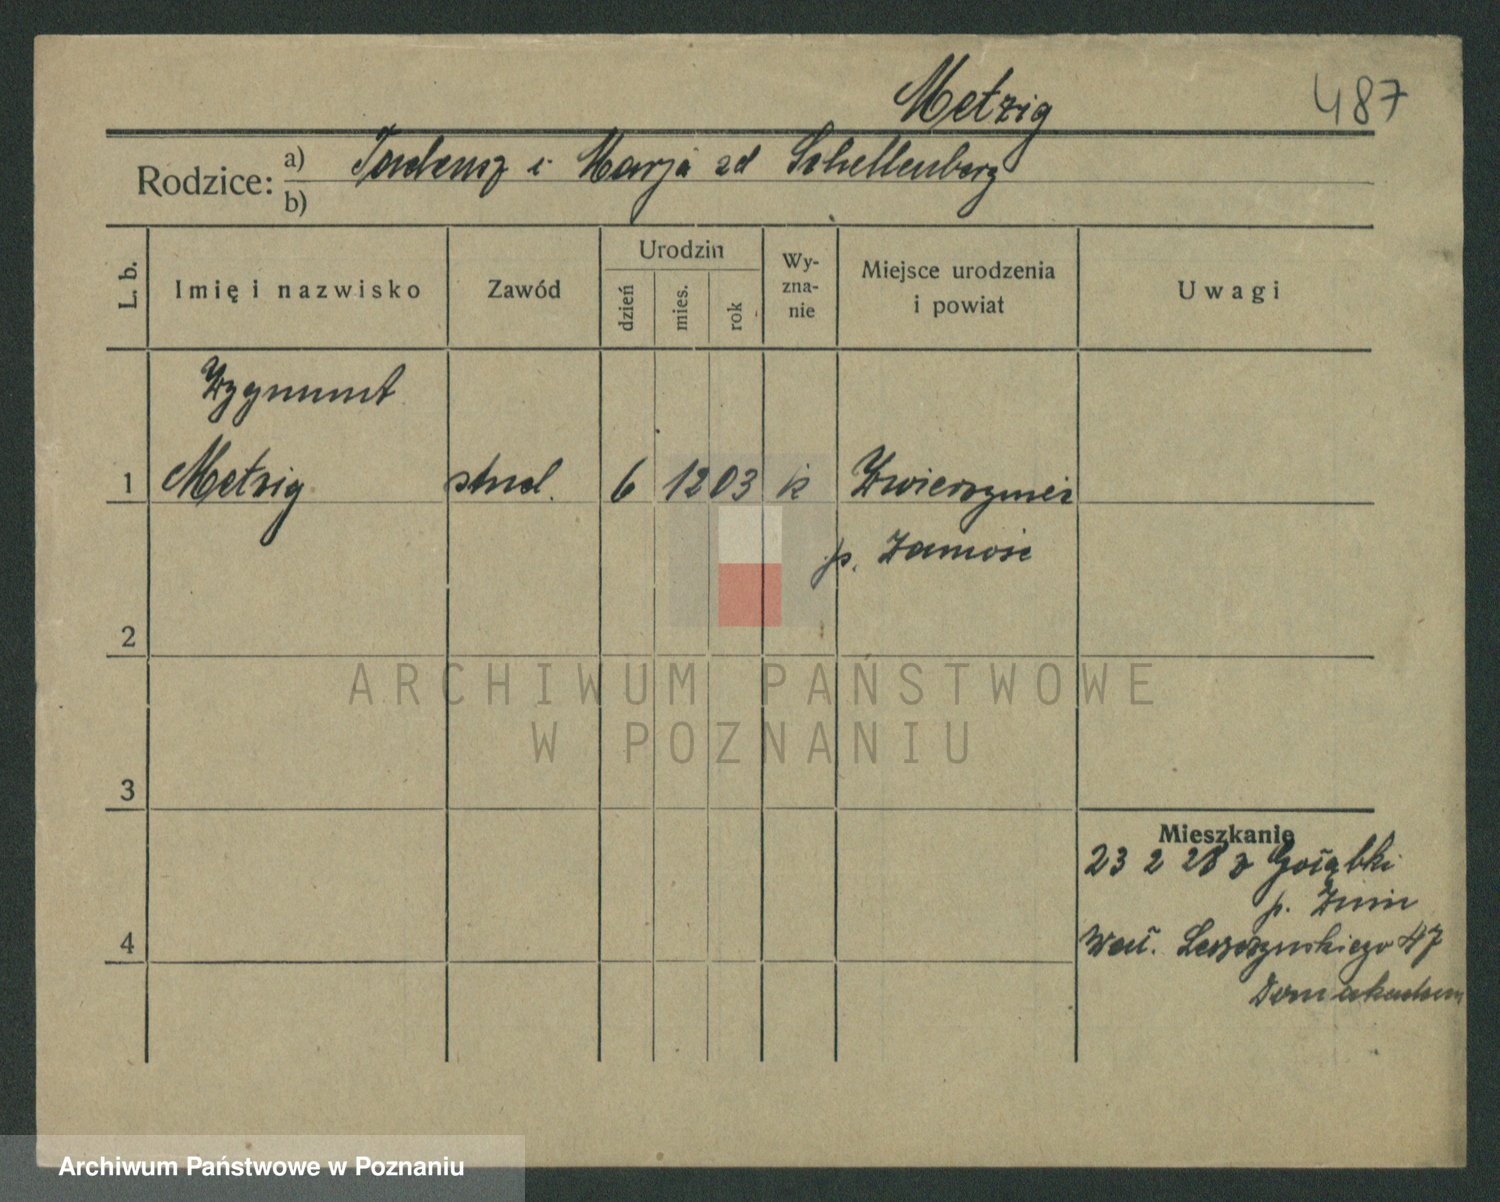 Metzig
487
Rodzice: a) Tadeusz i Marja zd Schellenberg
b)
L. b.
Imię i nazwisko
Zawód
Urodzin
dzień
mies.
rok
Wy-
zna-
nie
Miejsce urodzenia
i powiat
Uwagi
Zygmunt
1 Metzig stud. 6 12 03 k Zwierzyniec
p. Zamość
2
ARCHIWUM PAŃSTWOWE
W POZNANIU
3
Mieszkanie
23 2 28 z Gołąbki
p. Żnin
4 Wał. Leszczyńskiego 47
Dom akadem
Archiwum Państwowe w Poznaniu